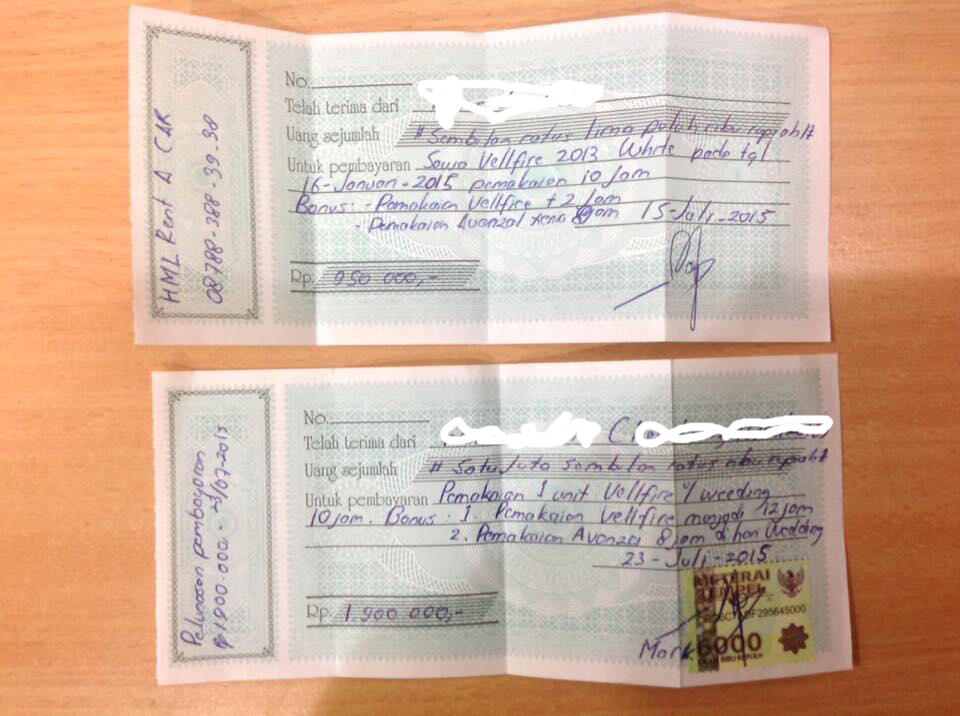 HML Rent A CAR
08788-388-39.38
No.
Telah terima dari
Uang sejumlah # Sembilan ratus lima puluh ribu rupiah #
Untuk pembayaran Sewa Vellfire 2013 White pada tgl
16-Januari-2015 pemakaian 10 jam
Bonus: - Pemakaian Vellfire + 2 jam
- Pemakaian Avanza/ xenia 8 jam 15-Juli-2015
Rp. 950 000,-
Pelunasan pembayaran
1.900.000.- 23/07-2015
No.
Telah terima dari
Uang sejumlah # Satu Juta sembilan ratus ribu rupiah #
Untuk pembayaran Pemakaian 1 unit Vellfire u/ weeding
10 jam. Bonus : 1. Pemakaian Vellfire menjadi 12 jam
2. Pemakaian Avanza 8 jam di hari Wedding
23-Juli-2015
METERAI
TEMPEL
F295645000
6000
ENAM RIBU RUPIAH
Rp. 1.900 000,-